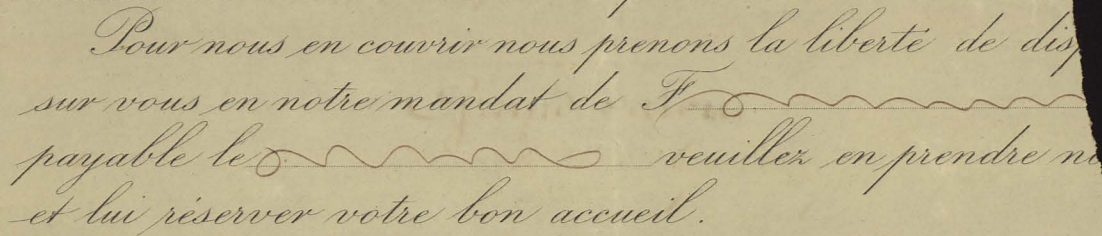 Pour nous en couvrir nous prenons la liberté de disp
sur vous en notre mandat de F
payable le veuillez en prendre no
et lui réserver votre bon accueil.